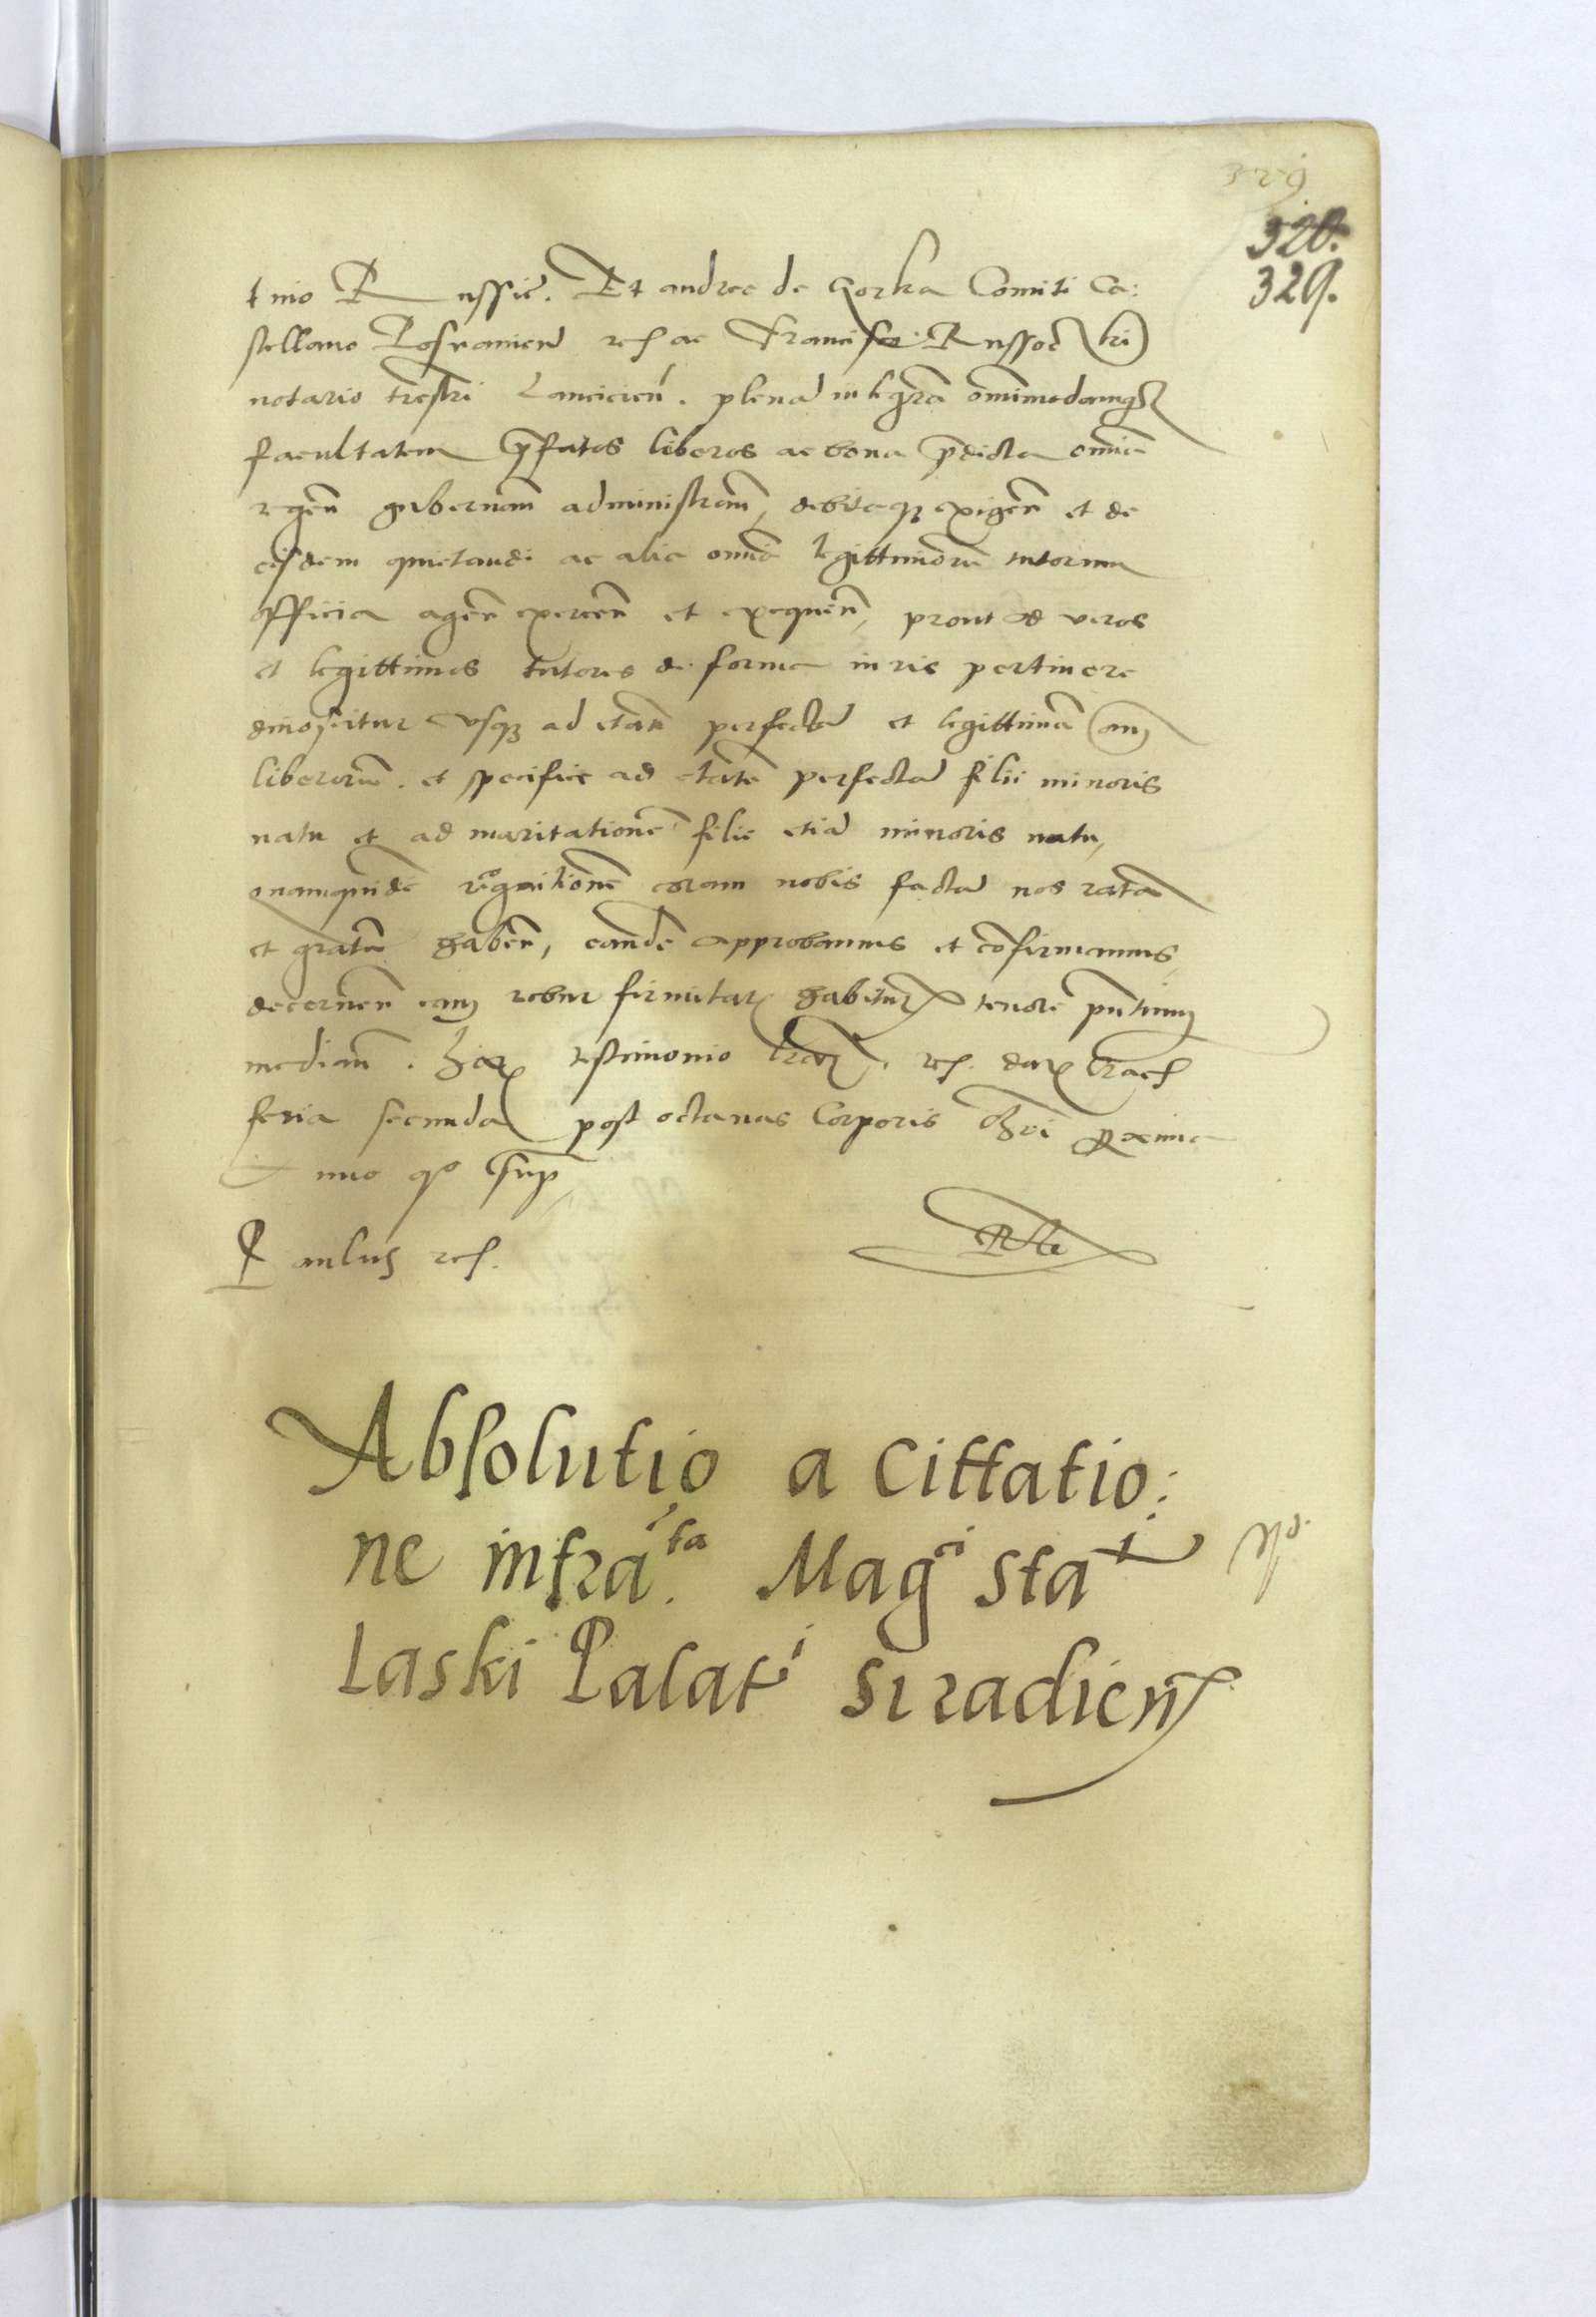 329
328.
329.
tino Russie. Et andree de Gorka Comiti Ca:
stellano Posnanien etc ac Francisco Russoc
notario trestri Lancicien. plenā integrā omnimodamq
facultatem p̄fatos liberos ac bona p̄dicta omnia
regen̄ gubernan̄ administran̄, debitaq exigen̄ et de
eisdem quietandi ac alia omnia legittimorū tutorum
officia agen̄ exercen̄ et exequen̄, prout ad veros
et legittimos tutores de forma iuris pertinere
dinoscitur vsq ad etatē perfectā et legittimā
liberorū. et specifice ad etatē perfectā filii minoris
natu et ad maritationē filie etiā minoris natu,
quamquidē recognitionē coram nobis factā nos ratā
et gratā haben̄, eandē approbamus et cōfirmamus,
decernen̄ eam robur firmitatis habiturā tenore pn̄tium
median̄. Harū testimonio lrarū. etc. datū Crac
feria secunda post octauas Corporis Chri proxima
Anno quo supra
Paulus etc.
Absolutio a Cittatio:
ne infra^ta. Mag^ci Sta^i
Laski Palat^i Siradien